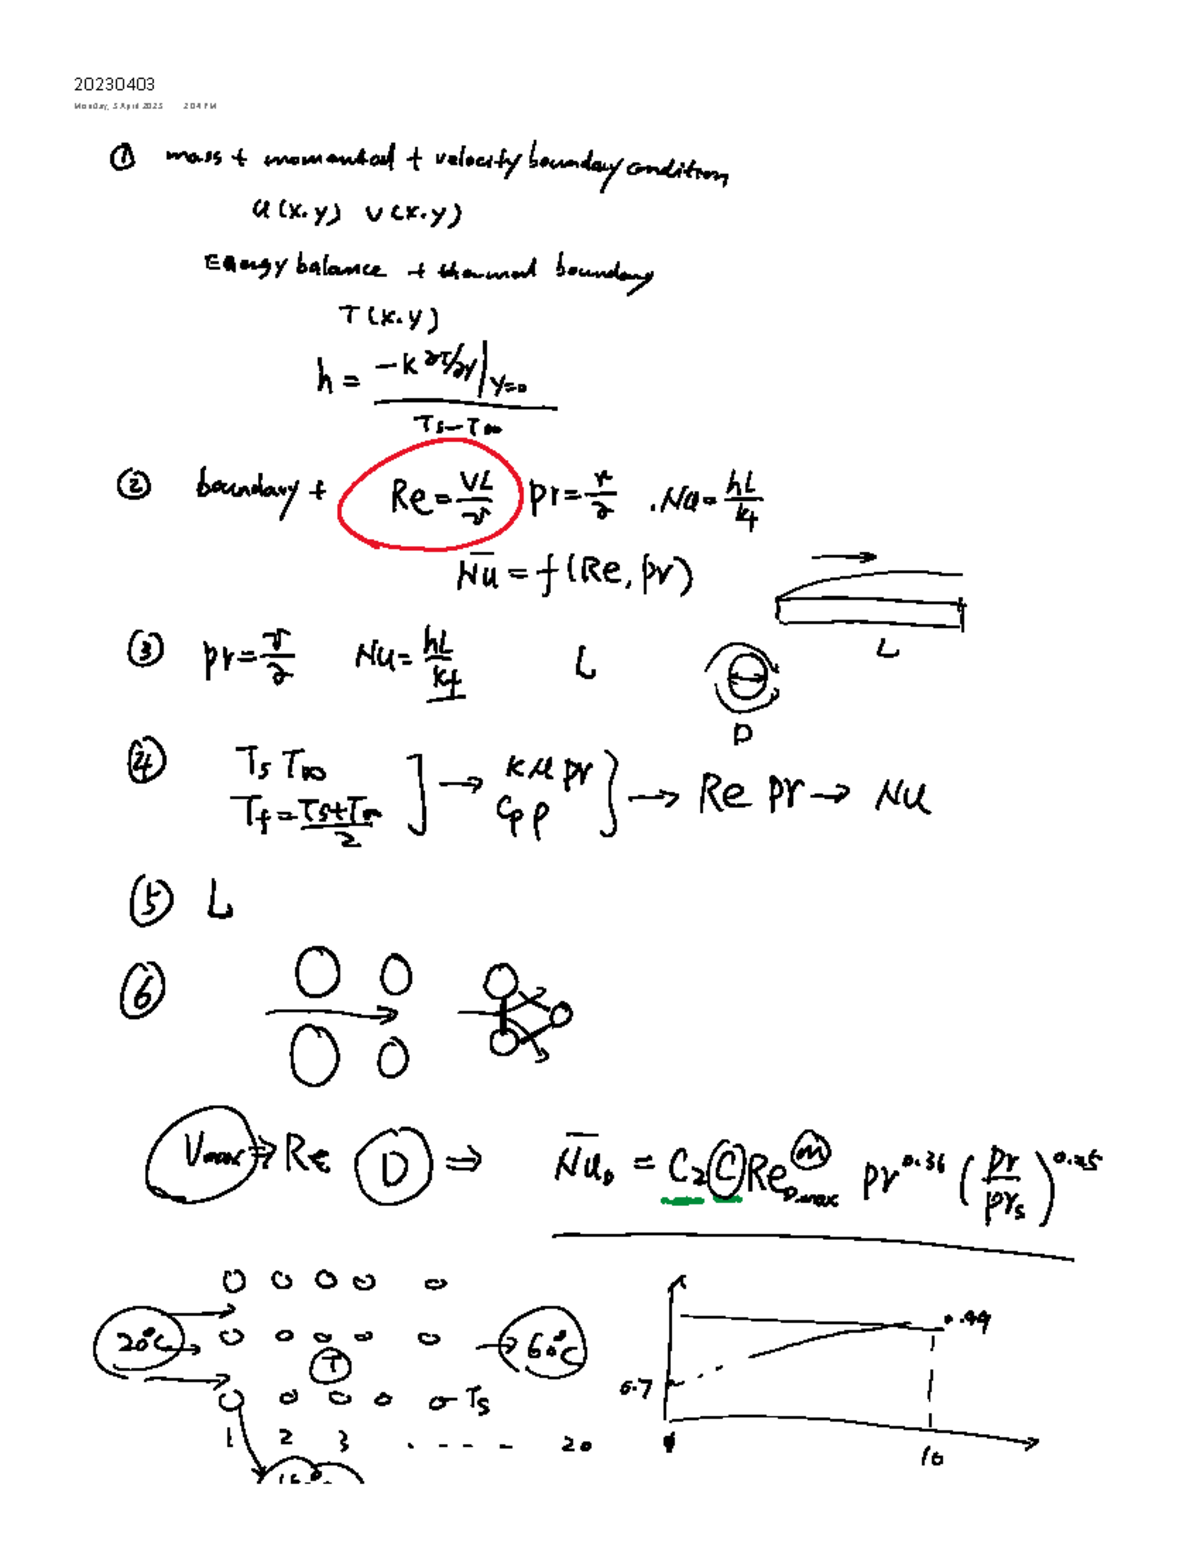 20230403
Monday, 3 April 2023 2:04 PM
① mass + momentad + velocity boundary condition
u(x.y) v(x.y)
Energy balance + thermal boundary
T(x.y)
h = -k ∂T/∂y|y=0
Ts-T∞
② boundary + Re = VL/ν pr = ν/α . Nu = hL/kf
N̅u̅ = f(Re, pr)
③ pr = ν/α Nu = hL/kf L L
D
④ Ts T∞ → k μ pr → Re pr → Nu
Tf = Ts+T∞/2 Cp ρ
⑤ L
⑥
Vmax ⇒ Re D ⇒ N̅u̅D = C2 C Re D,max m pr 0.36 (pr/prs) 0.25
20°C T 60°C 0.99
0.7
Ts
1 2 3 . - - - - 20
10